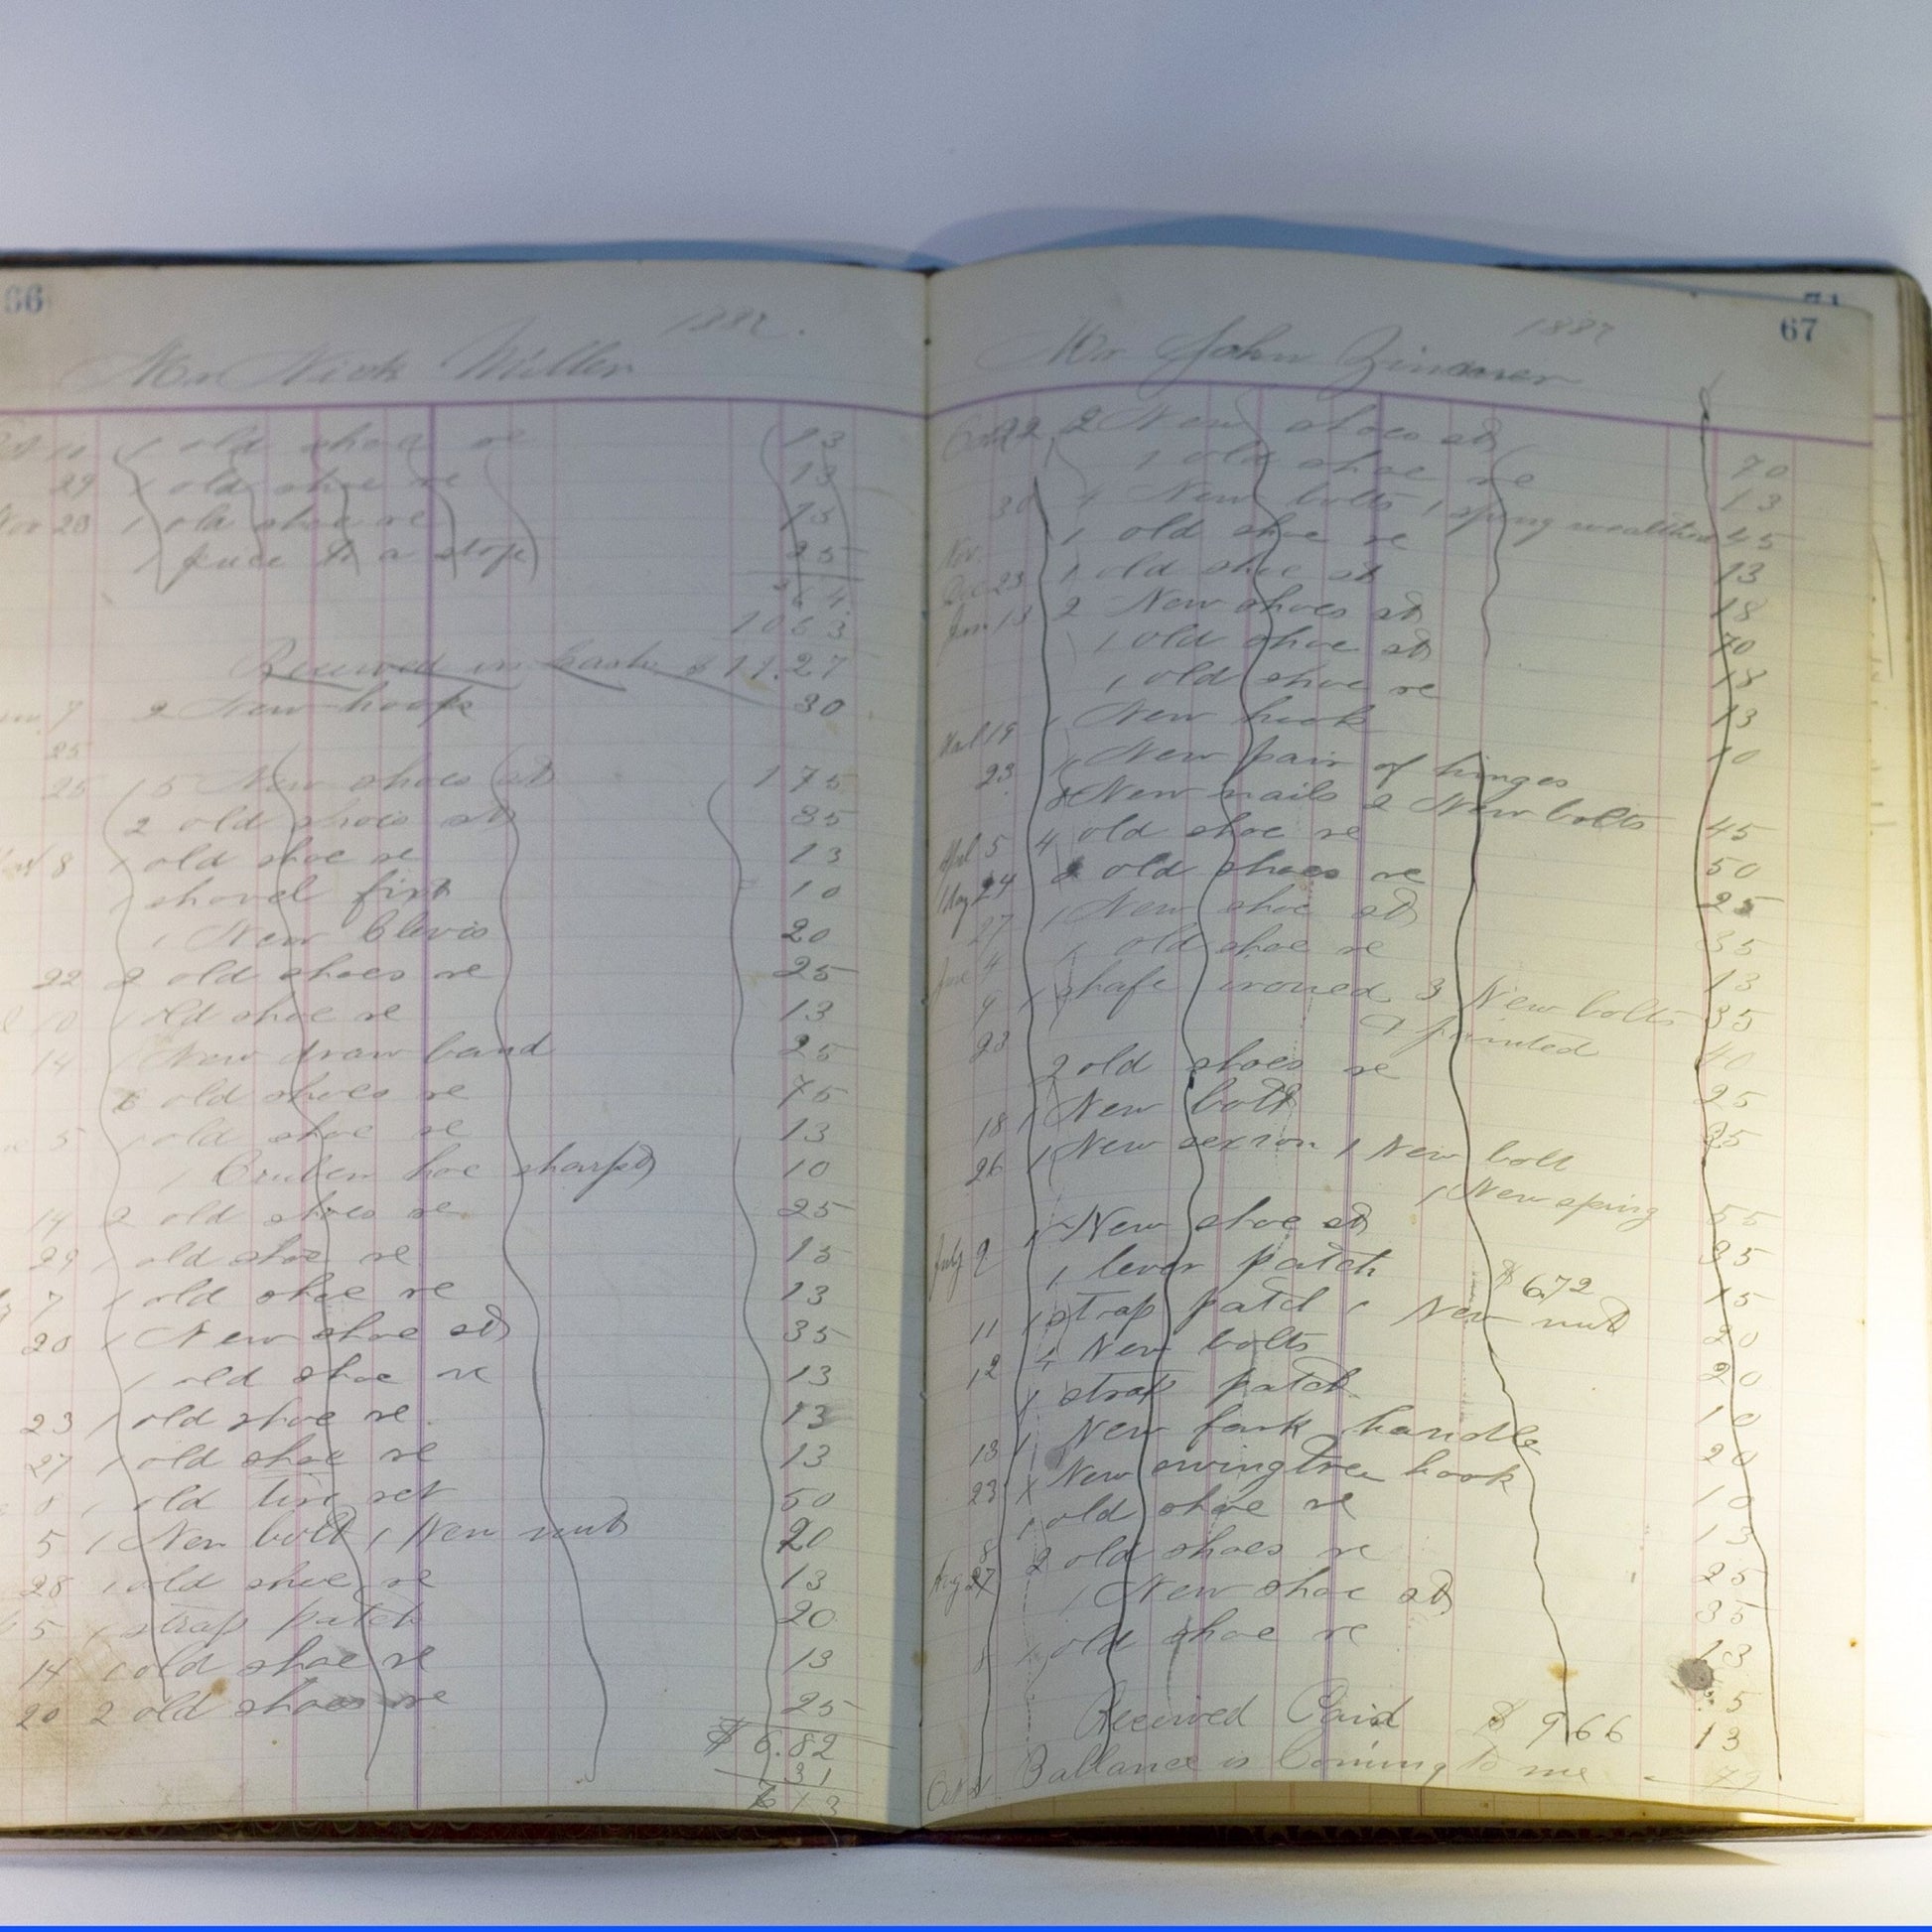 66
1887.
Mr Nick Miller
Oct 11 1 old shoe re 13
29 1 old shoe re 13
Nov 28 1 old shoe re 13
1 to a stop 25
64
1063
Received in Cash $ 11.27
7 2 New hoops 30
25
25 5 New shoes st 175
2 old shoes st 35
8 1 old shoe re 13
1 shovel fixt 10
1 New Clevis 20
22 2 old shoes re 25
10 1 old shoe re 13
14 1 New draw band 25
6 old shoes re 75
5 1 old shoe re 13
1 hoe sharpd 10
14 2 old shoes re 25
29 1 old shoe re 13
7 1 old shoe re 13
20 1 New shoe st 35
1 old shoe re 13
23 1 old shoe re 13
27 1 old shoe re 13
8 1 old tire set 50
5 1 New bolt 1 New nut 20
28 1 old shoe re 13
5 1 strap patch 20
14 1 old shoe re 13
20 2 old shoes re 25
$ 6.82
31
613
71
67
1887
Mr John
Oct 22 2 New shoes st 70
1 old shoe re 13
30 4 New bolts 1 spring 45
Nov. 1 old shoe re 13
Dec 23 1 old shoe st 18
Jan 13 2 New shoes st 70
1 old shoe st 18
1 old shoe re 13
19 1 New hook 10
23 1 New pair of hinges
8 New nails 2 New bolts 45
April 5 4 old shoe re 50
May 24 2 old shoes re 25
27 1 New shoe st 35
June 4 1 old shoe re 13
9 1 shafe ironed 3 New bolts 35
& painted 40
23 2 old shoes re 25
18 1 New bolt 25
26 1 New 1 New bolt
1 New spring 55
July 9 1 New shoe st 35
1 lever patch $ 6.72 15
11 1 strap patch 1 New nut 20
12 4 New bolts 20
1 strap patch 10
13 1 New fork handle 20
23 1 New swingtree hook 10
1 old shoe re 13
8 2 old shoes re 25
Aug 27 1 New shoe st 35
8 1 old shoe re 13
5
Received Paid $ 9.66 13
Oct Ballance is Coming to me